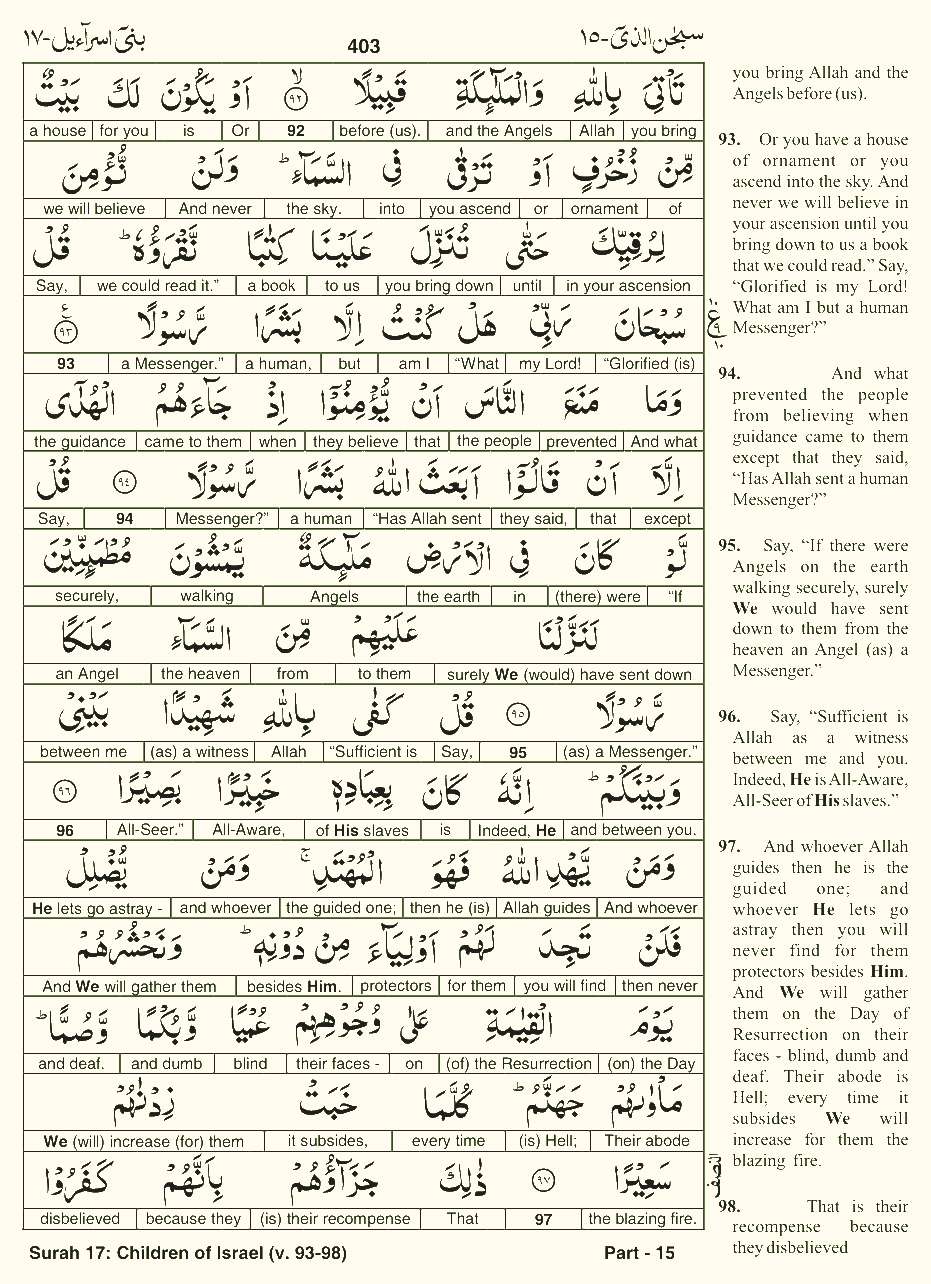 سبحٰن الذیٓ-١٥
403
بنیٓ اسرآءیل-١٧
تَاْتِیَ بِاللّٰهِ وَالْمَلٰٓئِكَةِ قَبِیْلًا ۙ﴿٩٢﴾ اَوْ یَكُوْنَ لَكَ بَیْتٌ
you bring | Allah | and the Angels | before (us). | 92 | Or | is | for you | a house
مِّنْ زُخْرُفٍ اَوْ تَرْقٰی فِی السَّمَآءِ ؕ وَلَنْ نُّؤْمِنَ
of | ornament | or | you ascend | into | the sky. | And never | we will believe
لِرُقِیِّكَ حَتّٰی تُنَزِّلَ عَلَیْنَا كِتٰبًا نَّقْرَؤُهٗ ؕ قُلْ
in your ascension | until | you bring down | to us | a book | we could read it.” | Say,
سُبْحَانَ رَبِّیْ هَلْ كُنْتُ اِلَّا بَشَرًا رَّسُوْلًا ﴿٩٣﴾ ع
“Glorified (is) | my Lord! | “What | am I | but | a human, | a Messenger.” | 93
وَمَا مَنَعَ النَّاسَ اَنْ یُّؤْمِنُوْۤا اِذْ جَآءَهُمُ الْهُدٰۤی
And what | prevented | the people | that | they believe | when | came to them | the guidance
اِلَّاۤ اَنْ قَالُوْۤا اَبَعَثَ اللّٰهُ بَشَرًا رَّسُوْلًا ﴿٩٤﴾ قُلْ
except | that | they said, | “Has Allah sent | a human | Messenger?” | 94 | Say,
لَّوْ كَانَ فِی الْاَرْضِ مَلٰٓئِكَةٌ یَّمْشُوْنَ مُطْمَئِنِّیْنَ
“If | (there) were | in | the earth | Angels | walking | securely,
لَنَزَّلْنَا عَلَیْهِمْ مِّنَ السَّمَآءِ مَلَكًا
surely We (would) have sent down | to them | from | the heaven | an Angel
رَّسُوْلًا ﴿٩٥﴾ قُلْ كَفٰی بِاللّٰهِ شَهِیْدًۢا بَیْنِیْ
(as) a Messenger.” | 95 | Say, | “Sufficient is | Allah | (as) a witness | between me
وَبَیْنَكُمْ ؕ اِنَّهٗ كَانَ بِعِبَادِهٖ خَبِیْرًۢا بَصِیْرًا ﴿٩٦﴾
and between you. | Indeed, He | is | of His slaves | All-Aware, | All-Seer.” | 96
وَمَنْ یَّهْدِ اللّٰهُ فَهُوَ الْمُهْتَدِ ۚ وَمَنْ یُّضْلِلْ
And whoever | Allah guides | then he (is) | the guided one; | and whoever | He lets go astray -
فَلَنْ تَجِدَ لَهُمْ اَوْلِیَآءَ مِنْ دُوْنِهٖ ؕ وَنَحْشُرُهُمْ
then never | you will find | for them | protectors | besides Him. | And We will gather them
یَوْمَ الْقِیٰمَةِ عَلٰی وُجُوْهِهِمْ عُمْیًا وَّبُكْمًا وَّصُمًّا ؕ
(on) the Day | (of) the Resurrection | on | their faces - | blind | and dumb | and deaf.
مَاْوٰىهُمْ جَهَنَّمُ ؕ كُلَّمَا خَبَتْ زِدْنٰهُمْ
Their abode | (is) Hell; | every time | it subsides, | We (will) increase (for) them
سَعِیْرًا ﴿٩٧﴾ ذٰلِكَ جَزَآؤُهُمْ بِاَنَّهُمْ كَفَرُوْا
the blazing fire. | 97 | That | (is) their recompense | because they | disbelieved
ع
١٠
٩
١٠
النصف
you bring Allah and the
Angels before (us).
93. Or you have a house
of ornament or you
ascend into the sky. And
never we will believe in
your ascension until you
bring down to us a book
that we could read.” Say,
“Glorified is my Lord!
What am I but a human
Messenger?”
94. And what
prevented the people
from believing when
guidance came to them
except that they said,
“Has Allah sent a human
Messenger?”
95. Say, “If there were
Angels on the earth
walking securely, surely
We would have sent
down to them from the
heaven an Angel (as) a
Messenger.”
96. Say, “Sufficient is
Allah as a witness
between me and you.
Indeed, He is All-Aware,
All-Seer of His slaves.”
97. And whoever Allah
guides then he is the
guided one; and
whoever He lets go
astray then you will
never find for them
protectors besides Him.
And We will gather
them on the Day of
Resurrection on their
faces - blind, dumb and
deaf. Their abode is
Hell; every time it
subsides We will
increase for them the
blazing fire.
98. That is their
recompense because
they disbelieved
Surah 17: Children of Israel (v. 93-98)
Part - 15